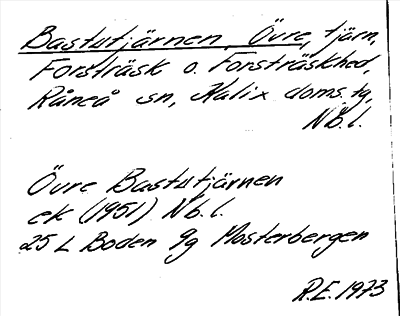 Bastutjärnen, Övre, tjärn,
Forsträsk o. Forsträskhed,
Råneå sn, Kalix doms.tg,
Nb.l.
Övre Bastutjärnen
ek (1951) Nb.l.
25 L Boden 9g Mosterbergen
R.E. 1973